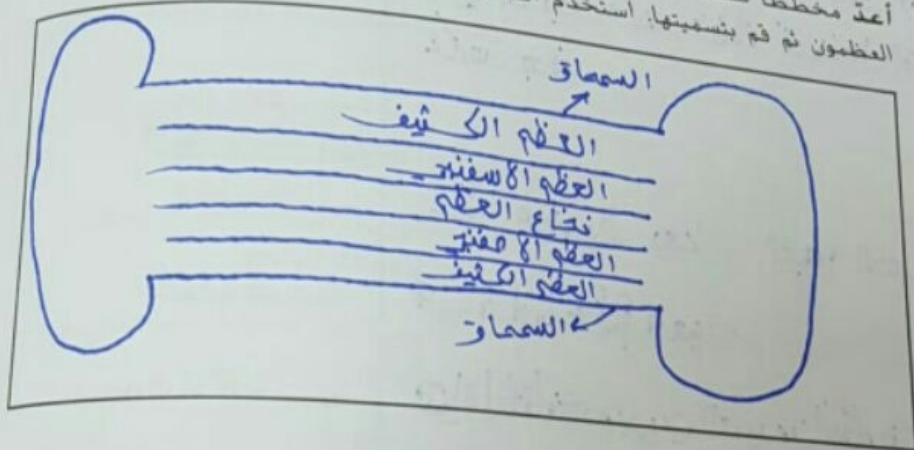 أعد مخططا
العظمون ثم قم بتسميتها. استخدم
السمحاق
العظم الكثيف
العظم الاسفنجي
نخاع العظم
العظم الاسفنجي
العظم الكثيف
السمحاق